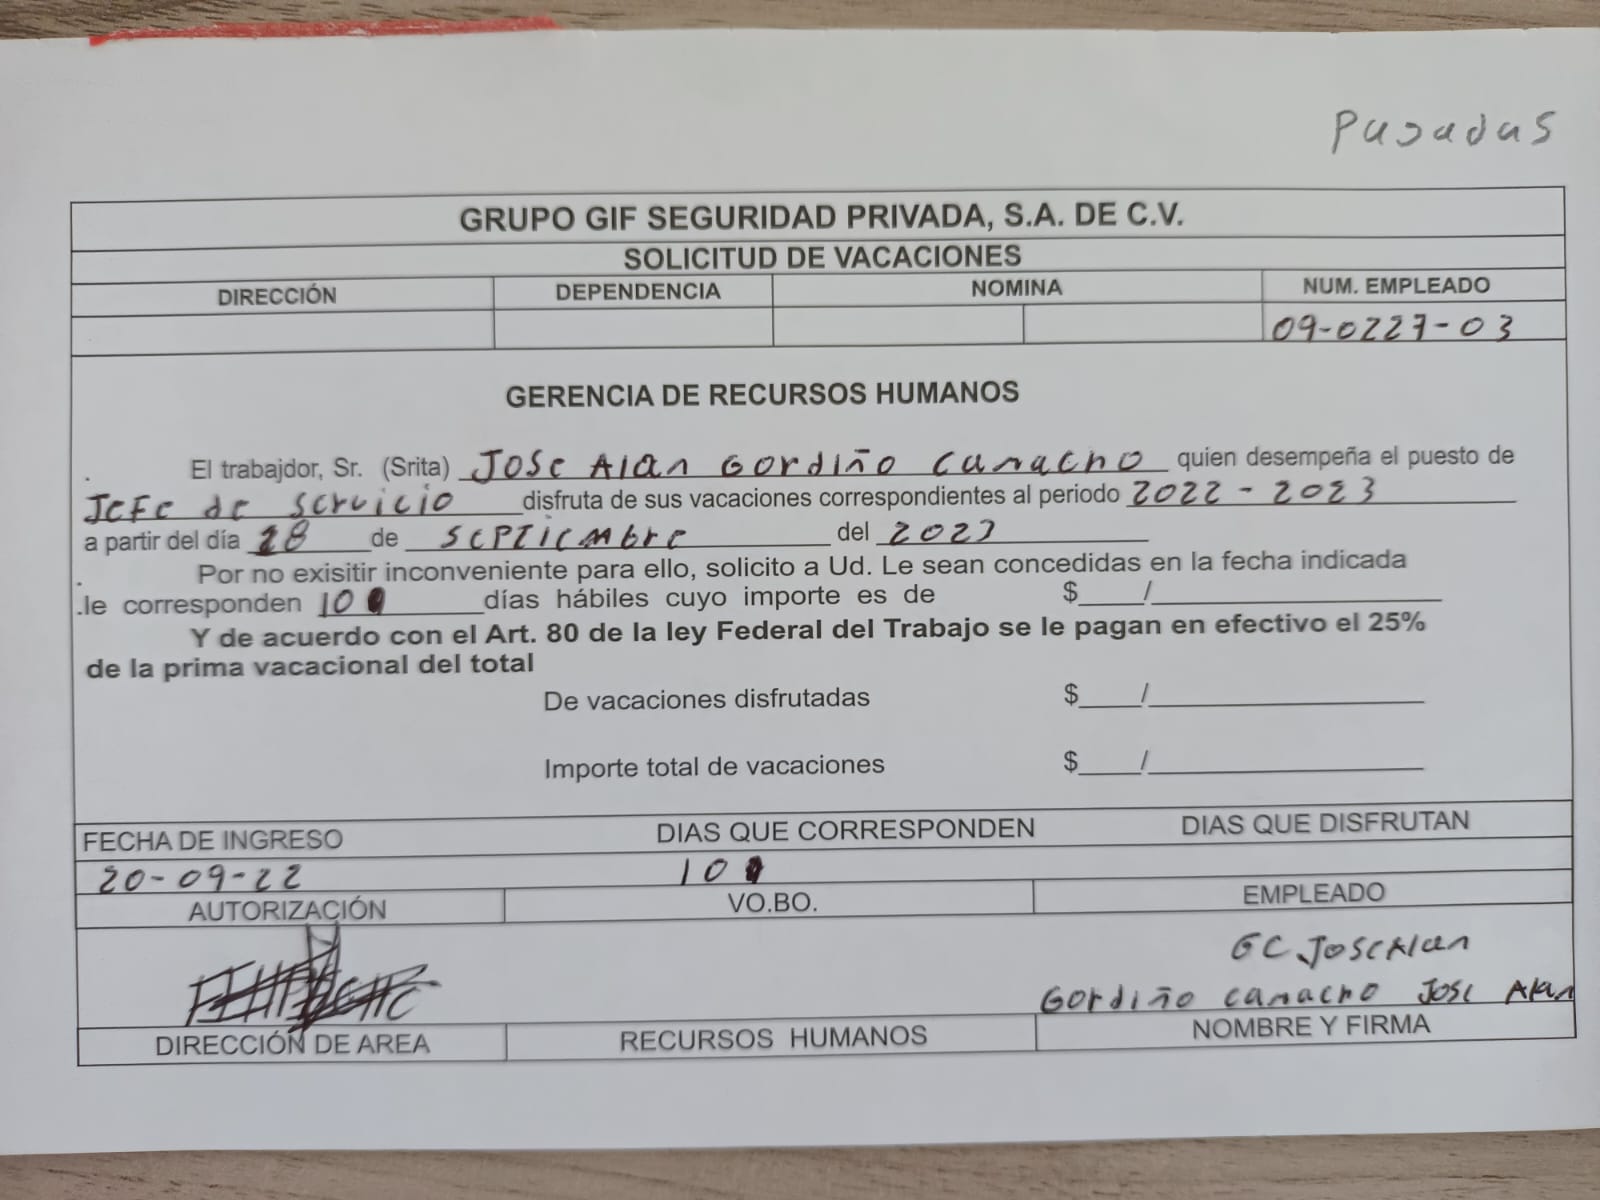 Pasadas
GRUPO GIF SEGURIDAD PRIVADA, S.A. DE C.V.
SOLICITUD DE VACACIONES
DIRECCIÓN DEPENDENCIA NOMINA NUM. EMPLEADO
09-0227-03
GERENCIA DE RECURSOS HUMANOS
. El trabajdor, Sr. (Srita) Jose Alan Gordiño Camacho quien desempeña el puesto de
Jefe de servicio disfruta de sus vacaciones correspondientes al periodo 2022-2023
a partir del día 28 de septiembre del 2023
. Por no exisitir inconveniente para ello, solicito a Ud. Le sean concedidas en la fecha indicada
.le corresponden 10 días hábiles cuyo importe es de $____/____
Y de acuerdo con el Art. 80 de la ley Federal del Trabajo se le pagan en efectivo el 25%
de la prima vacacional del total
De vacaciones disfrutadas $____/____
Importe total de vacaciones $____/____
FECHA DE INGRESO DIAS QUE CORRESPONDEN DIAS QUE DISFRUTAN
20-09-22 10
AUTORIZACIÓN VO.BO. EMPLEADO
GC Jose Alan
Gordiño Camacho Jose Alan
DIRECCIÓN DE AREA RECURSOS HUMANOS NOMBRE Y FIRMA